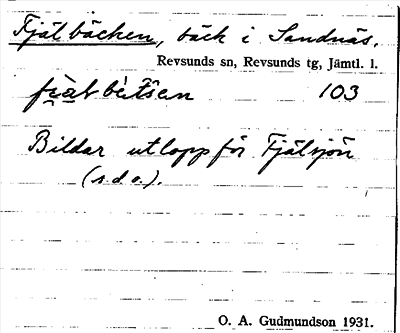 Fjälbäcken, bäck i Sandnäs.
Revsunds sn, Revsunds tg, Jämtl. l.
103
Bildar utlopp för Fjälsjön
(s.d.o.).
O. A. Gudmundson 1931.